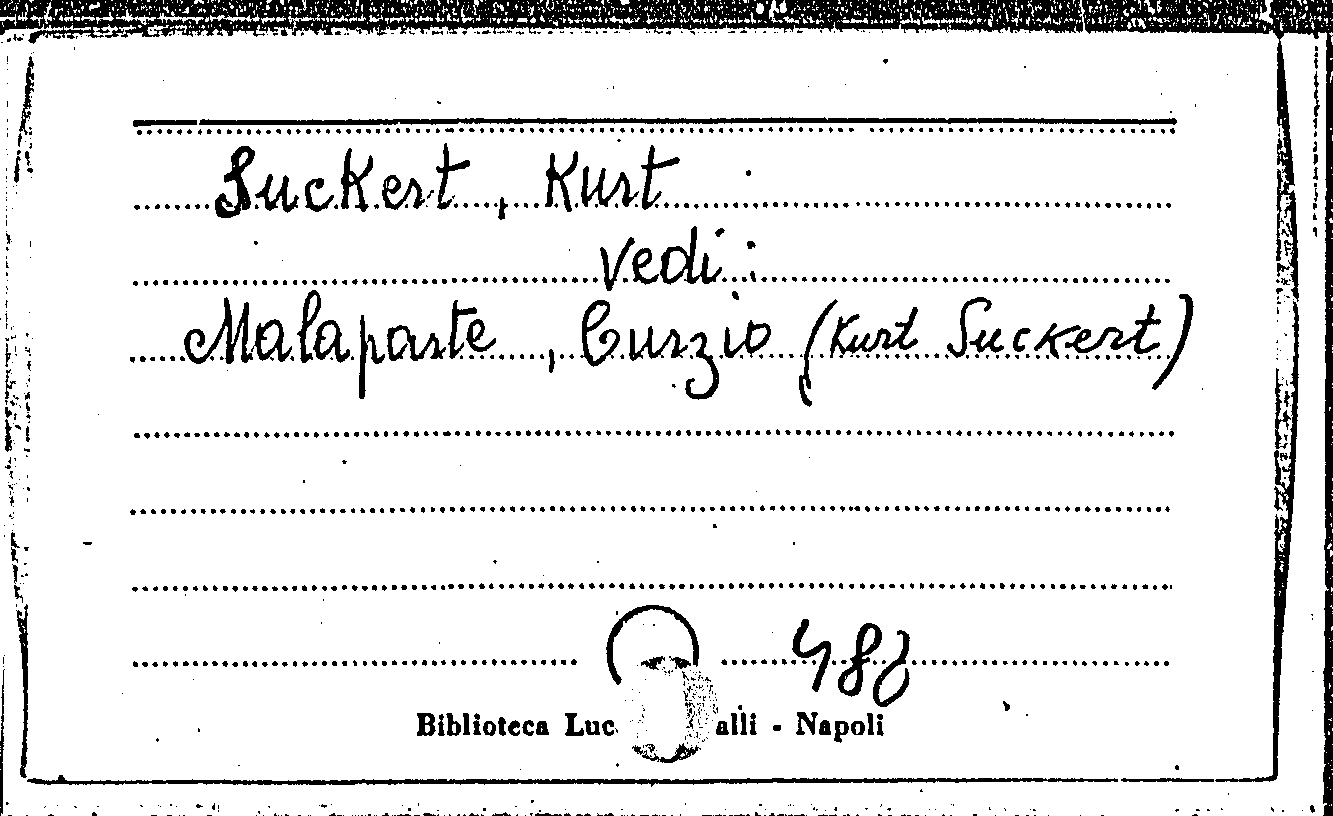 Suckert, Kurt
vedi:
Malaparte, Curzio (Kurt Suckert)
Biblioteca Luc alli - Napoli